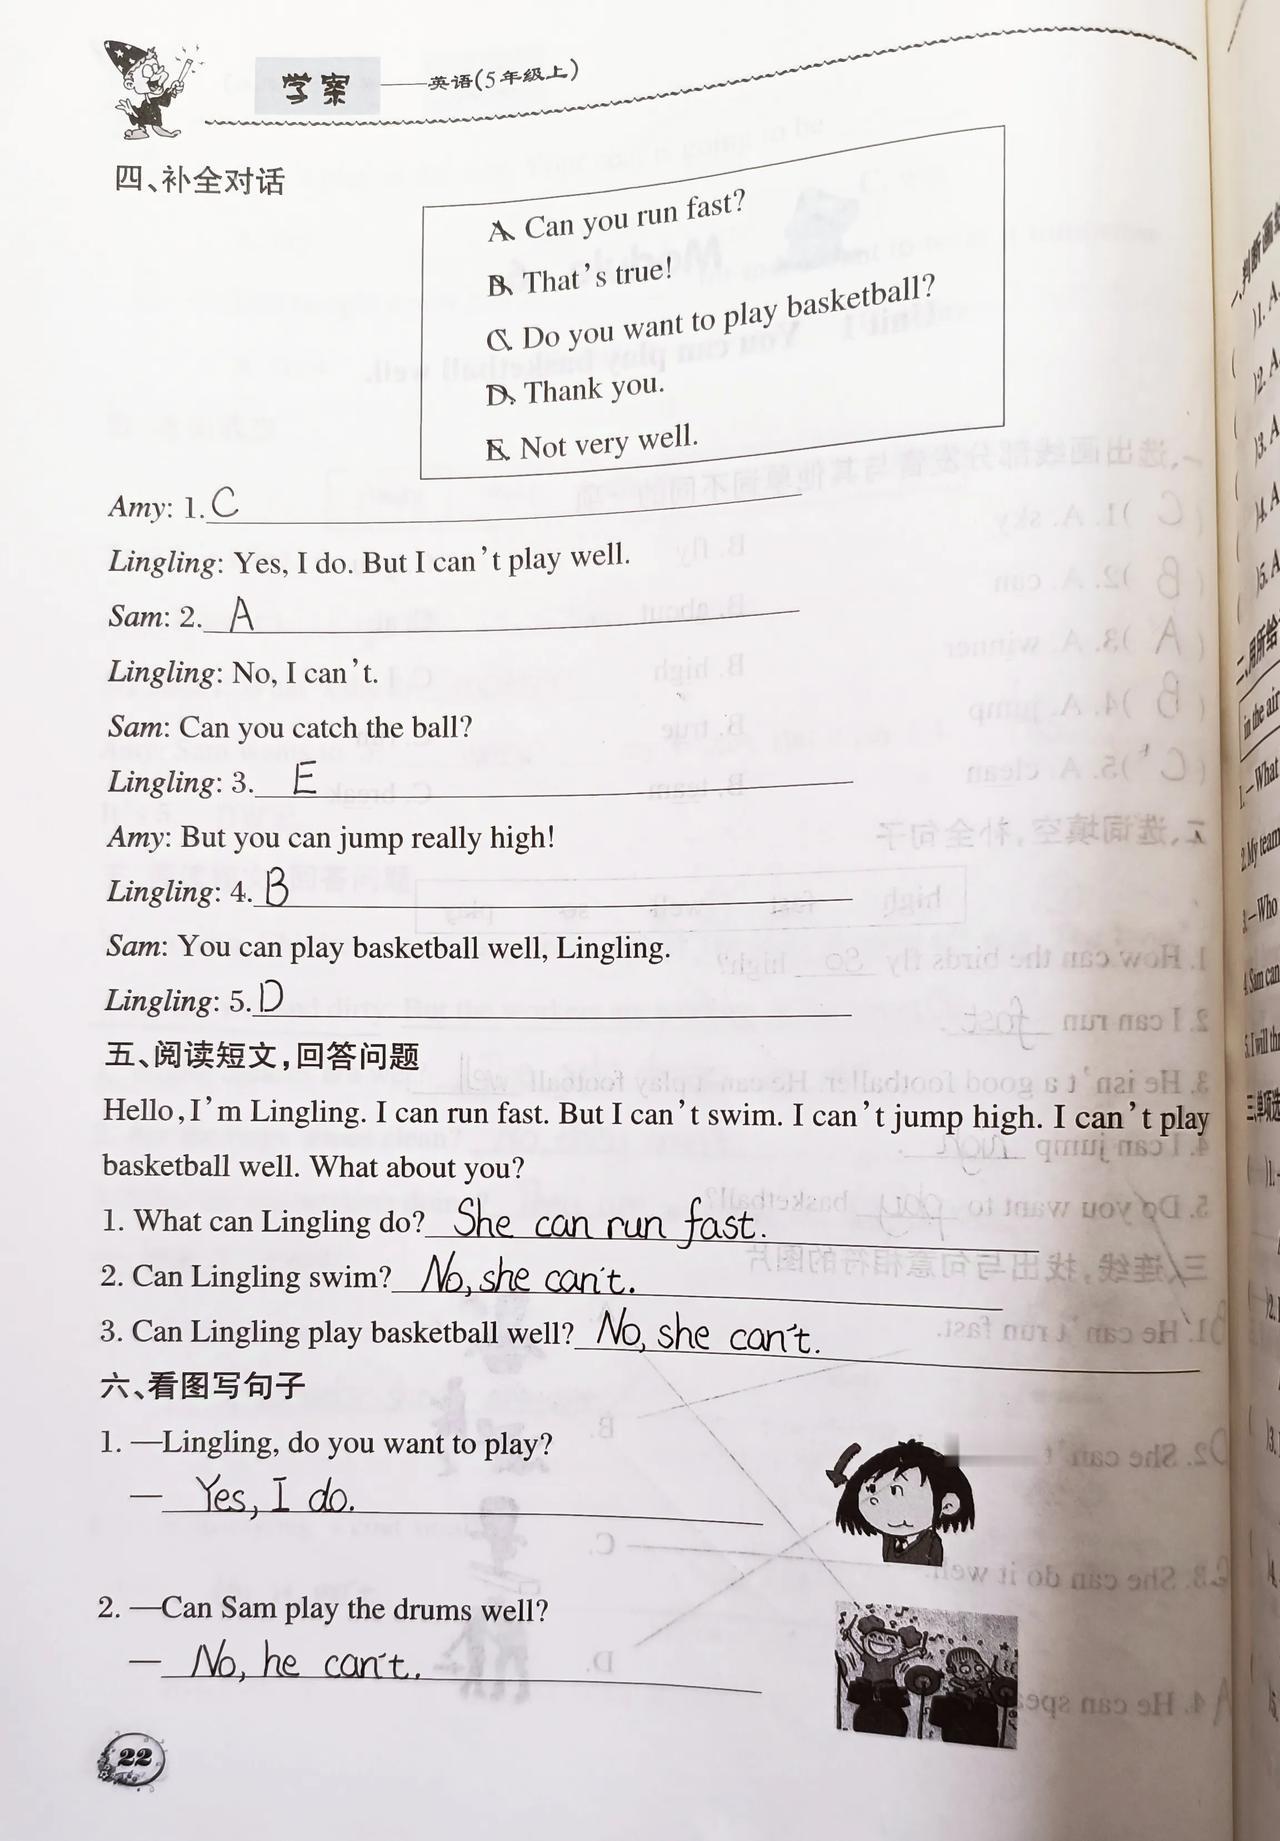 学案——英语(5年级上)
四、补全对话
A. Can you run fast?
B. That's true!
C. Do you want to play basketball?
D. Thank you.
E. Not very well.
Amy: 1. C
Lingling: Yes, I do. But I can't play well.
Sam: 2. A
Lingling: No, I can't.
Sam: Can you catch the ball?
Lingling: 3. E
Amy: But you can jump really high!
Lingling: 4. B
Sam: You can play basketball well, Lingling.
Lingling: 5. D
五、阅读短文,回答问题
Hello, I'm Lingling. I can run fast. But I can't swim. I can't jump high. I can't play
basketball well. What about you?
1. What can Lingling do? She can run fast.
2. Can Lingling swim? No, she can't.
3. Can Lingling play basketball well? No, she can't.
六、看图写句子
1. —Lingling, do you want to play?
— Yes, I do.
2. —Can Sam play the drums well?
— No, he can't.
22
)1. A.
)2. A.
)3. A
)4. A
)5. A
in the air
1. —What
2. My team
3. —Who
4. Sam can